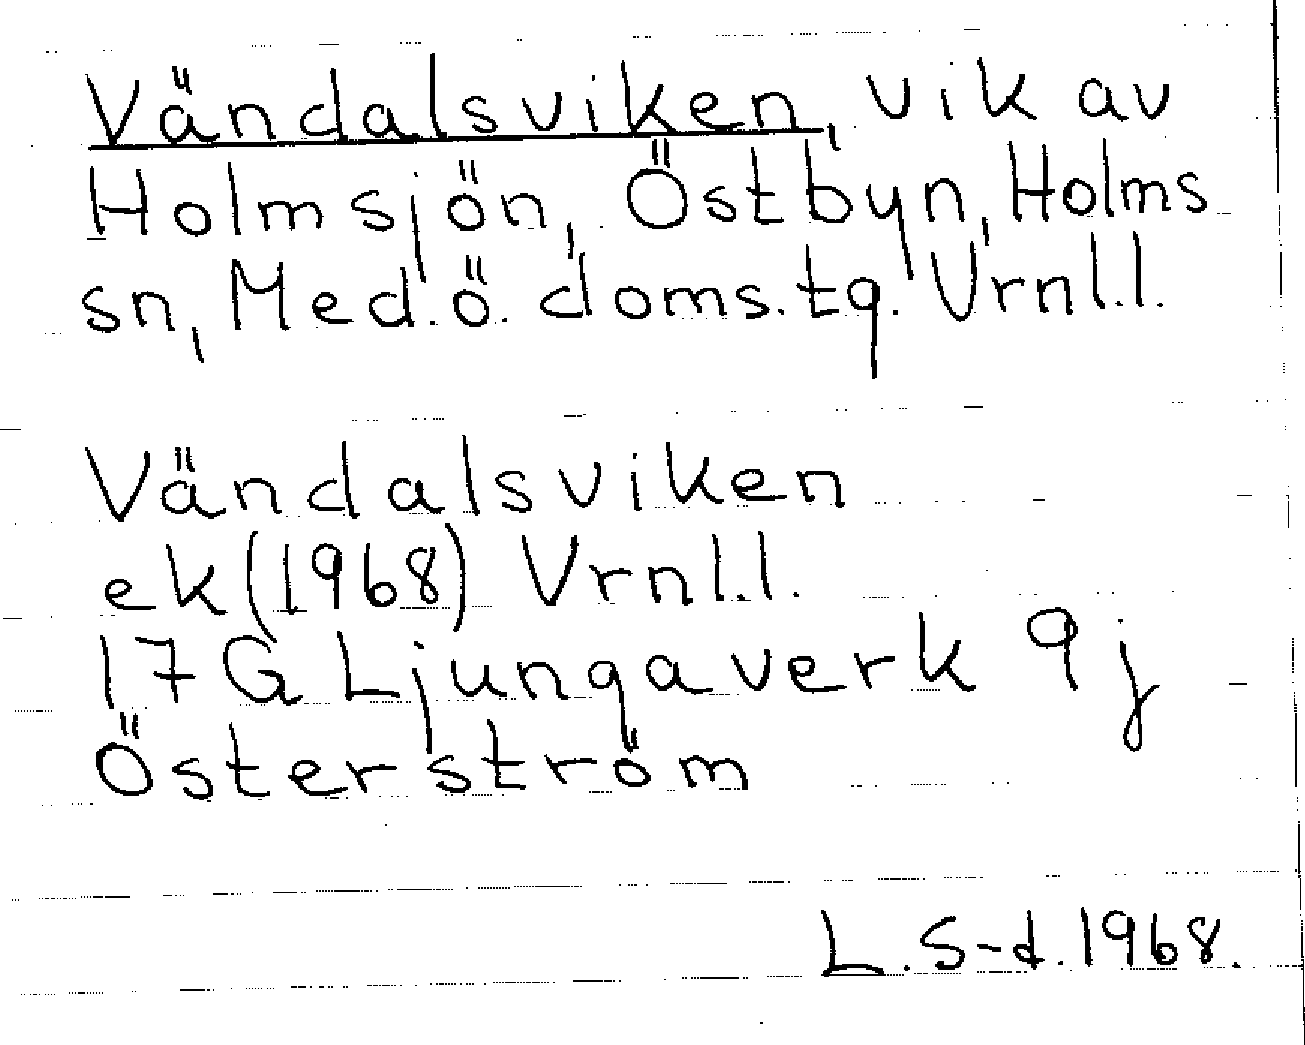 Vändalsviken, vik av
Holmsjön, Östbyn, Holms
sn, Med.ö. doms.tg. Vrnl.l.
Vändalsviken
ek (1968) Vrnl.l.
17 G Ljungaverk 9 j
Österström
L. S-d. 1968.